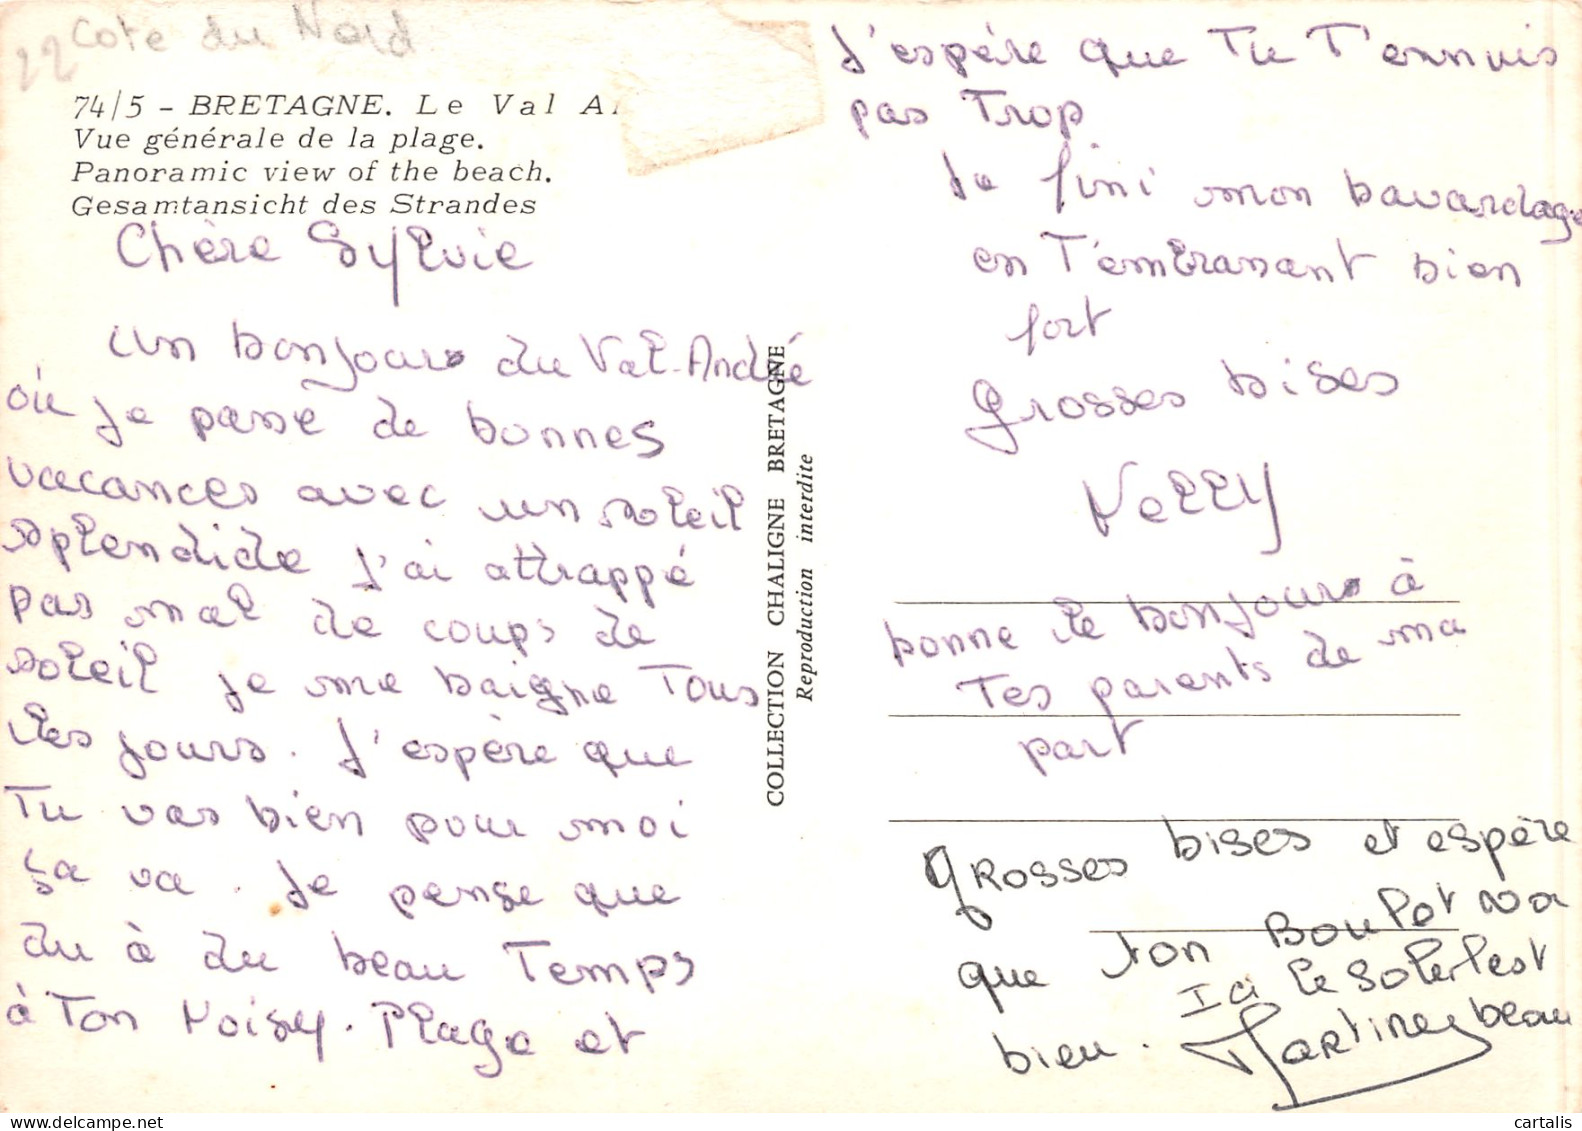 22 Cote du Nord
74/5 - BRETAGNE. Le Val A
Vue générale de la plage.
Panoramic view of the beach.
Gesamtansicht des Strandes
Chère Sylvie
un bonjour du Val-André
où je passe de bonnes
vacances avec un soleil
splendide j'ai attrappé
pas mal de coups de
soleil je me baigne Tous
les jours. J'espère que
Tu vas bien pour moi
sa va. Je pense que
du à du beau Temps
à Ton Noisy-Plage et
COLLECTION CHALIGNE BRETAGNE
Reproduction interdite
J'espère que Tu T'ennuis
pas Trop
Je fini mon bavardage
en T'embrassant bien
fort
grosses bises
Nelly
donne le bonjour à
Tes parents de ma
part
grosses bises et espère
que ton Boulot va
bien. Ici le soleil est
beau
Martine
cartalis